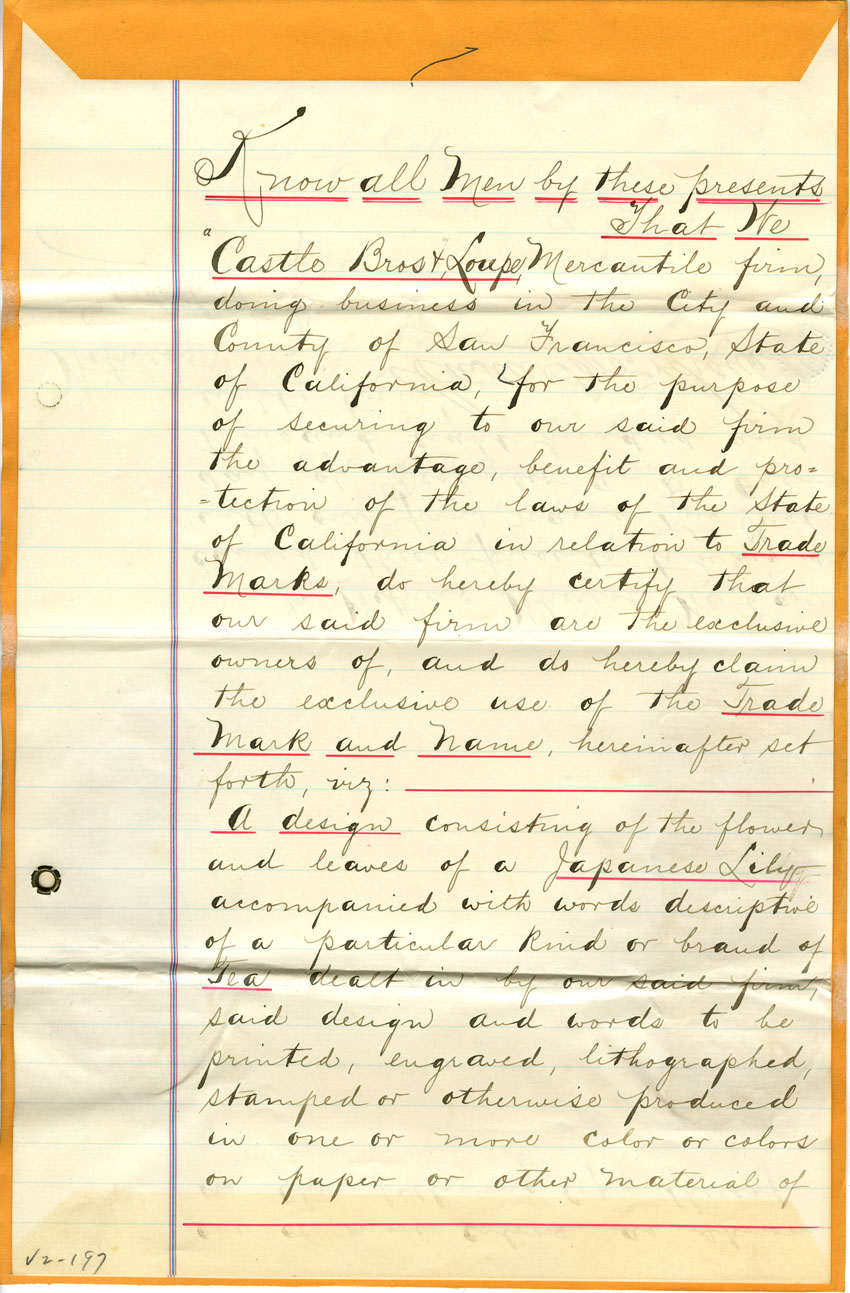 Know all Men by these presents
That We
"Castle Bros &, Loupe, Mercantile firm,
doing business in the City and
County of San Francisco, State
of California, for the purpose
of securing to our said firm
the advantage, benefit and pro=
=tection of the laws of the State
of California in relation to Trade
Marks, do hereby certify that
our said firm are the exclusive
owners of, and do hereby claim
the exclusive use of the Trade
Mark and Name, hereinafter set
forth, viz:
A design consisting of the flower
and leaves of a Japanese Lily
accompanied with words descriptive
of a particular kind or brand of
Tea dealt in by our said firm,
said design and words to be
printed, engraved, lithographed,
stamped or otherwise produced
in one or more color or colors
on paper or other material of
V2-197